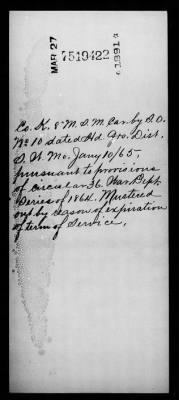 MAR 27
7519422
1891
Co. K. 8" M. S. M. Cav. by S. O.
No 10 dated Hd. Qrs. Dist.
S. W. Mo. Jany 10/65,
pursuant to provisions
of circular 36. War Dept.
Series of 1864. Mustered
out by reason of expiration
of term of Service,